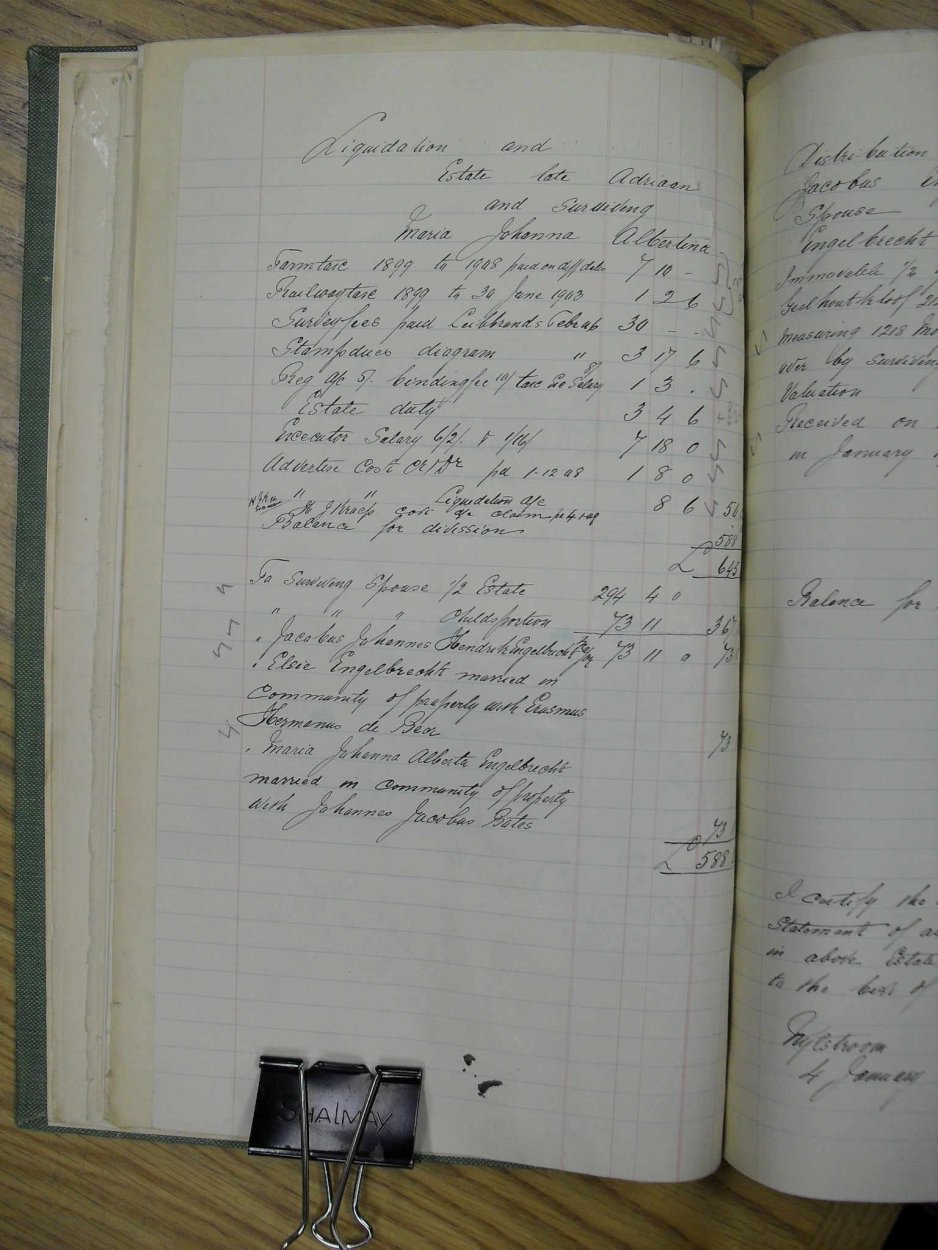 Liquidation and
Estate late Adriaan
and surviving
Maria Johanna Albertina
Farmtax 1899 to 1908 paid on diff dates 7 10 -
Railwaytax 1899 to 30 June 1903 1 2 6
Surveyfees paid Leibbrands 30 - -
Stampdues diagram " 3 17 6
Reg a/c 5/. bondingfee 10/ 1 3 .
Estate duty 3 4 6
Executor Salary 7 18 0
Cost pd 1.12 08 1 8 0
" " Liquidation a/c
cost of claim 8 6 56
Balance for division 588
£ 645
To Surviving Spouse 1/2 Estate 294 4 "
" " " Childsportion 73 11 367
" Jacobus Johannes Hendrik Engelbrecht 73 11 0 73
" Elsie Engelbrecht married in
Community of property with Erasmus
Hermanus de Beer 73
" Maria Johanna Alberta Engelbrecht
married in community of property
with Johannes Jacobus Bates 73
£ 588
Distribution
Jacobus
Spouse
Engelbrecht
Immovable 1/2
Geelhoutkloof
Measuring 1218 Mo
over by surviving
Valuation
Received on
in January
Balance for
I certify the
Statement of
in above Estate
to the best of
Nylstroom
4 January
SHALMAY